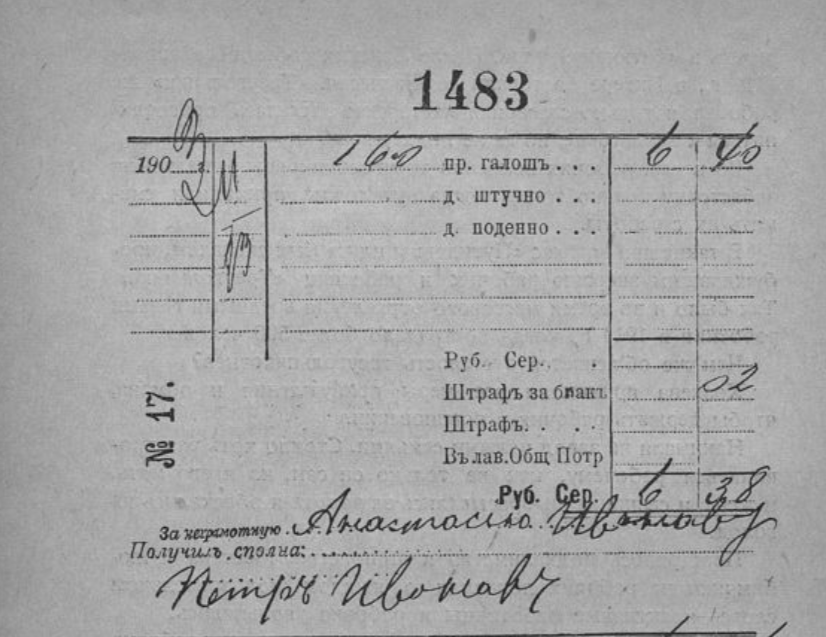 1483
190 г. 160 пр. галошъ . . . 6 40
д. штучно . . .
д. поденно . . .
Руб. Сер. .
Штрафъ за бракъ 02
Штрафъ. . . .
Въ лав. Общ Потр
№ 17.
Руб. Сер. 6 38
За неграмотную Анастасію Ивонаву
Получилъ сполна:
Петръ Ивонавъ